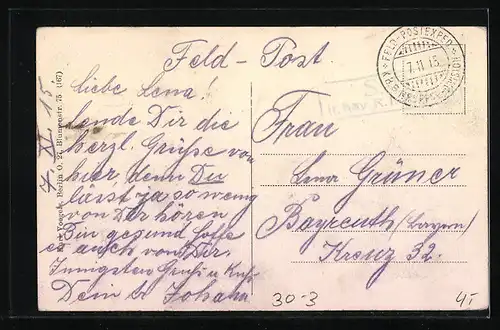 Feld - Post.
7. XI. 15.
Liebe Lena!
sende Dir die
herzl. Grüße von
hier, denn Du
lässt ja so wenig
von Dir hören
Bin gesund hoffe
es auch von Dir.
Innigsten Gruß u Kuß
Dein Johann
Frau
Lena Grüner
Bayreuth (Bayern)
Kreuz 32.
FELD-POSTEXPED.
7. 11. 15.
Berlin O. 27, Blumenstr. 75 (167)
30-3
4,-